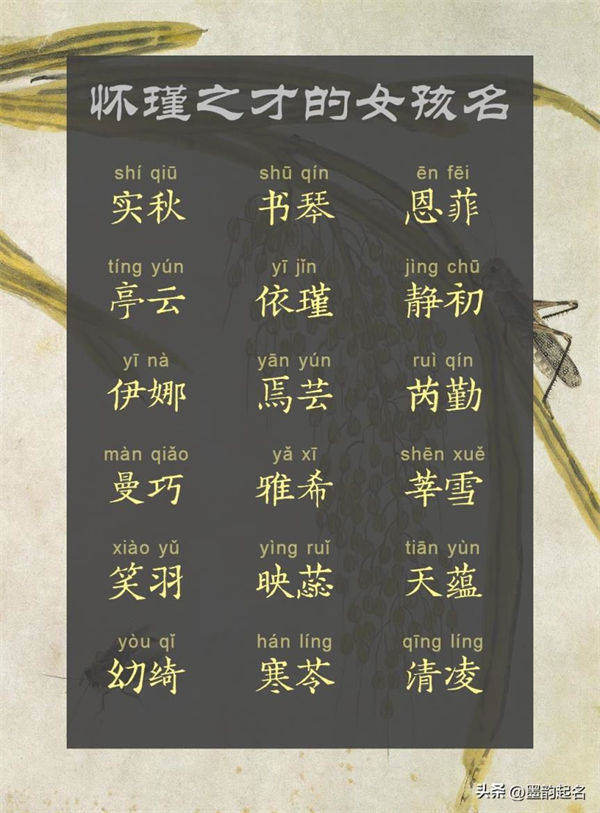 怀瑾之才的女孩名
shí qiū shū qín ēn fēi
实秋 书琴 恩菲
tíng yún yī jǐn jìng chū
亭云 依瑾 静初
yī nà yān yún ruì qín
伊娜 焉芸 芮勤
màn qiǎo yǎ xī shēn xuě
曼巧 雅希 莘雪
xiào yǔ yìng ruǐ tiān yùn
笑羽 映蕊 天蕴
yòu qǐ hán líng qīng líng
幼绮 寒苓 清凌
头条 @墨韵起名